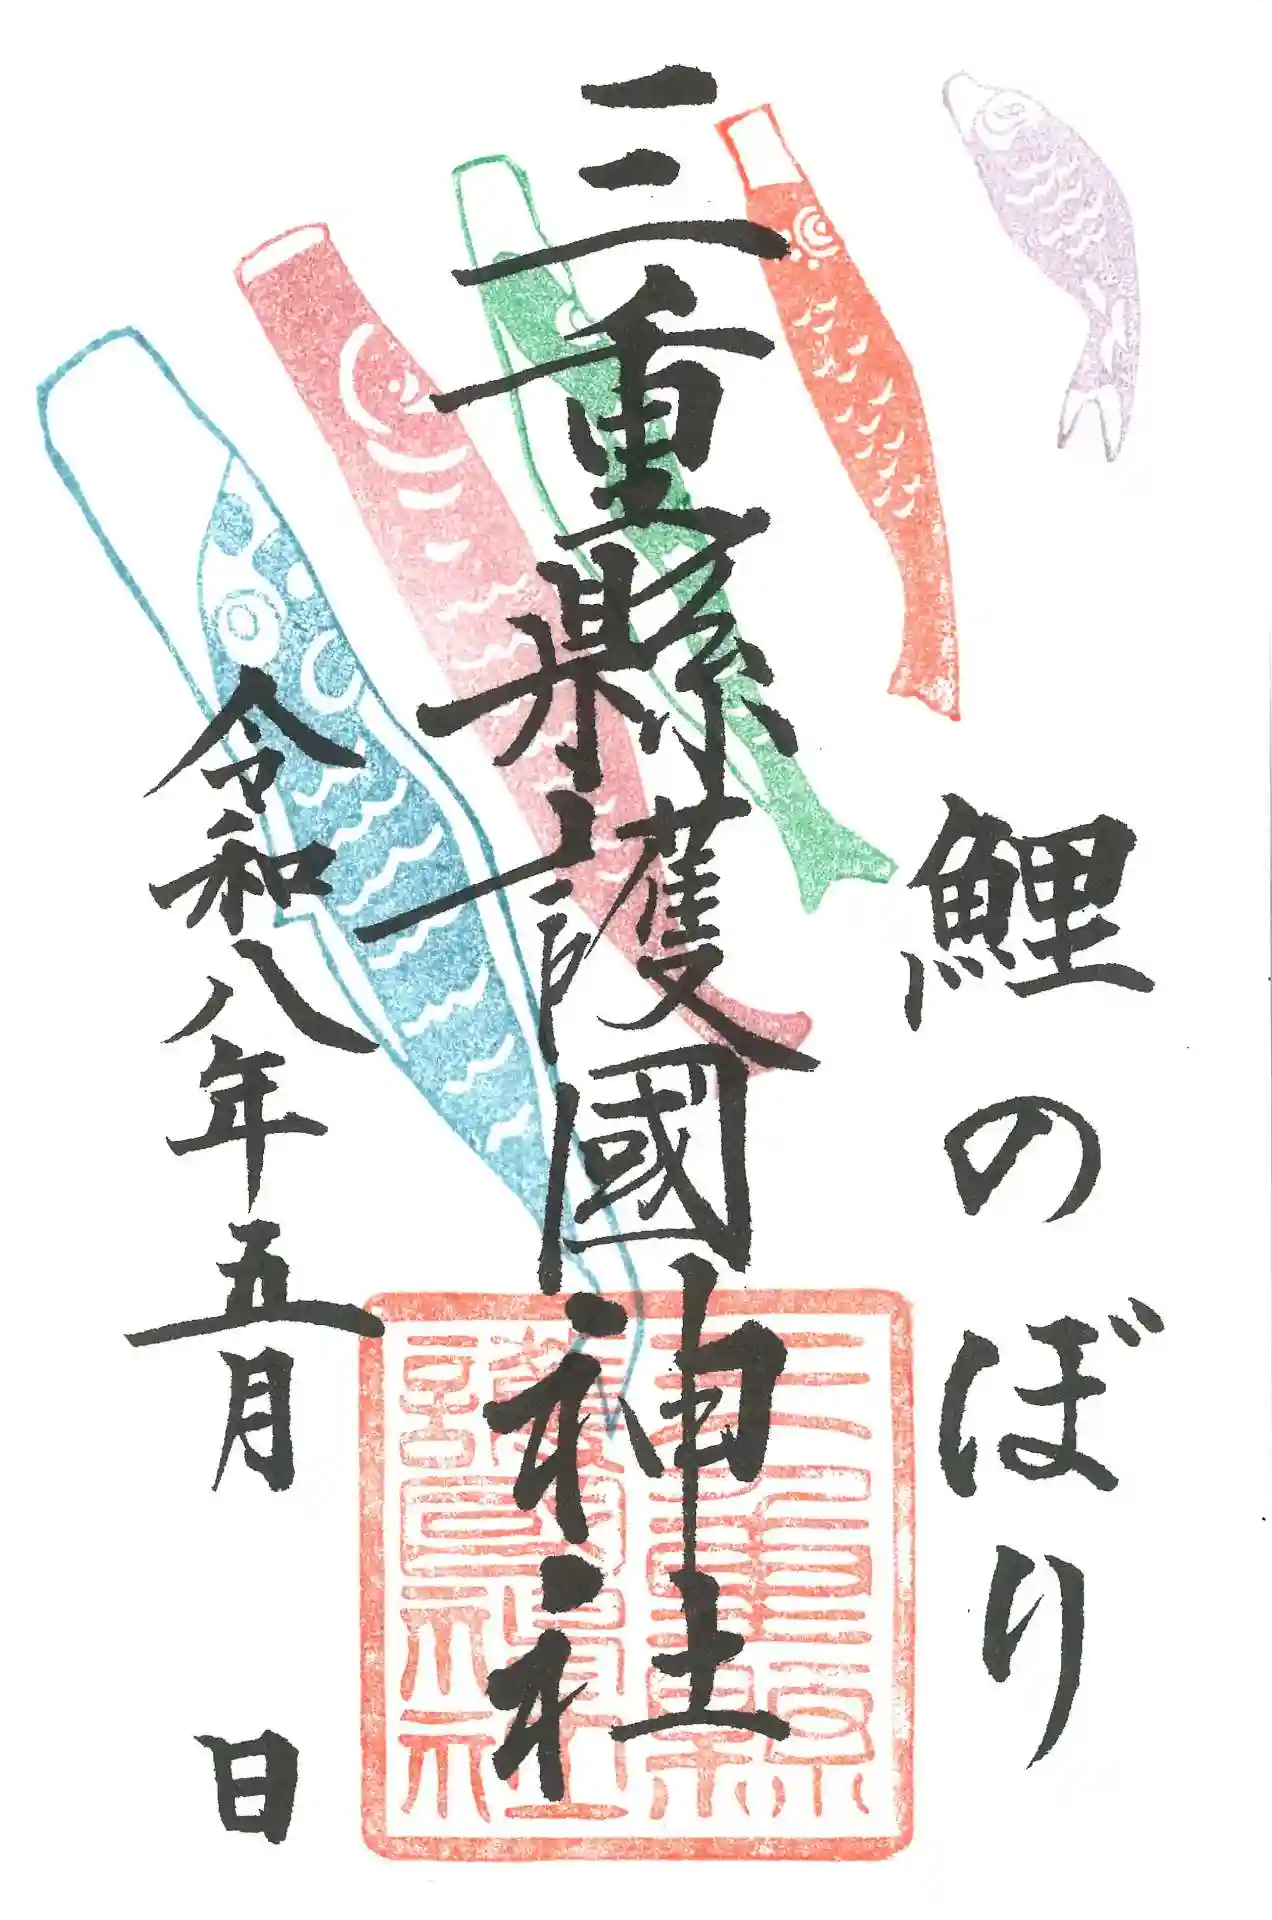 鯉のぼり
三重縣護國神社
令和八年五月 日
三重縣護國神社